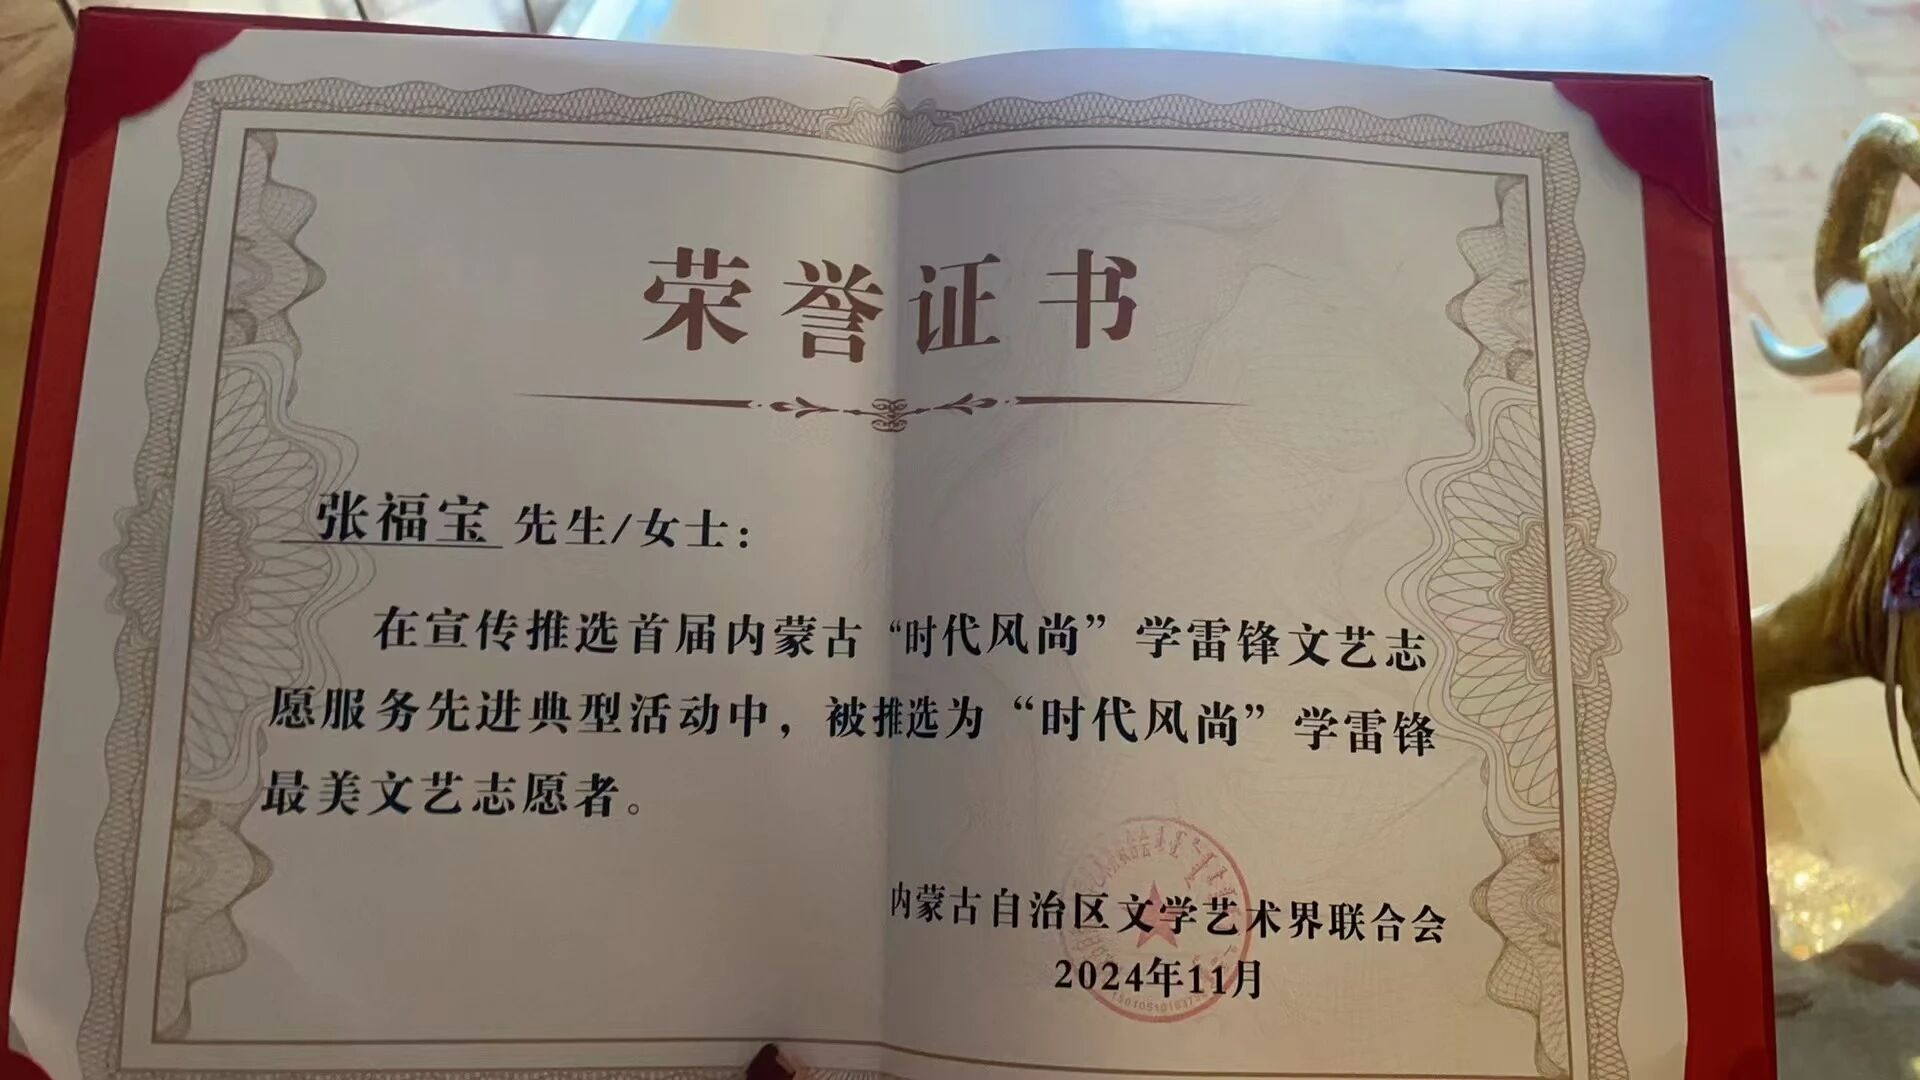 荣誉证书
张福宝 先生/女士：
在宣传推选首届内蒙古“时代风尚”学雷锋文艺志
愿服务先进典型活动中，被推选为“时代风尚”学雷锋
最美文艺志愿者。
内蒙古自治区文学艺术界联合会
2024年11月